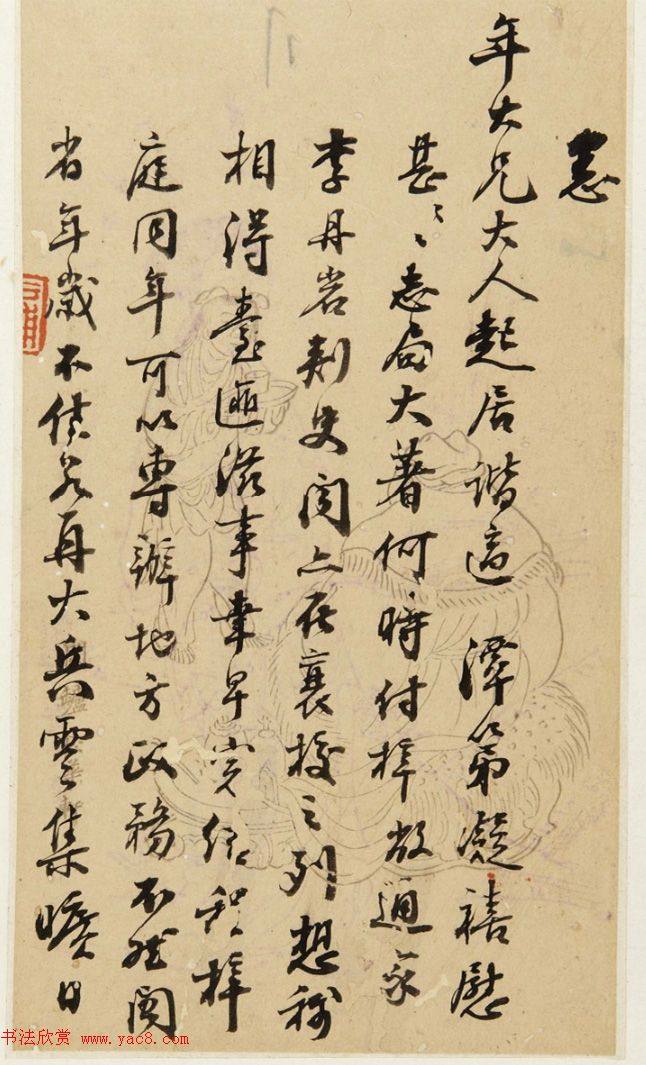 憲
年大兄大人起居諧適 潭第凝禧慰
甚〻志局大著何時付梓敝通家
李丹岩刺史閱亦在襄校之列想稱
相得 臺匪滋事幸早完結 梓
庭同年可以專辦地方政務不然閤
省年歲不佳若再大兵雲集曠日
书法欣赏 www.yac8.com